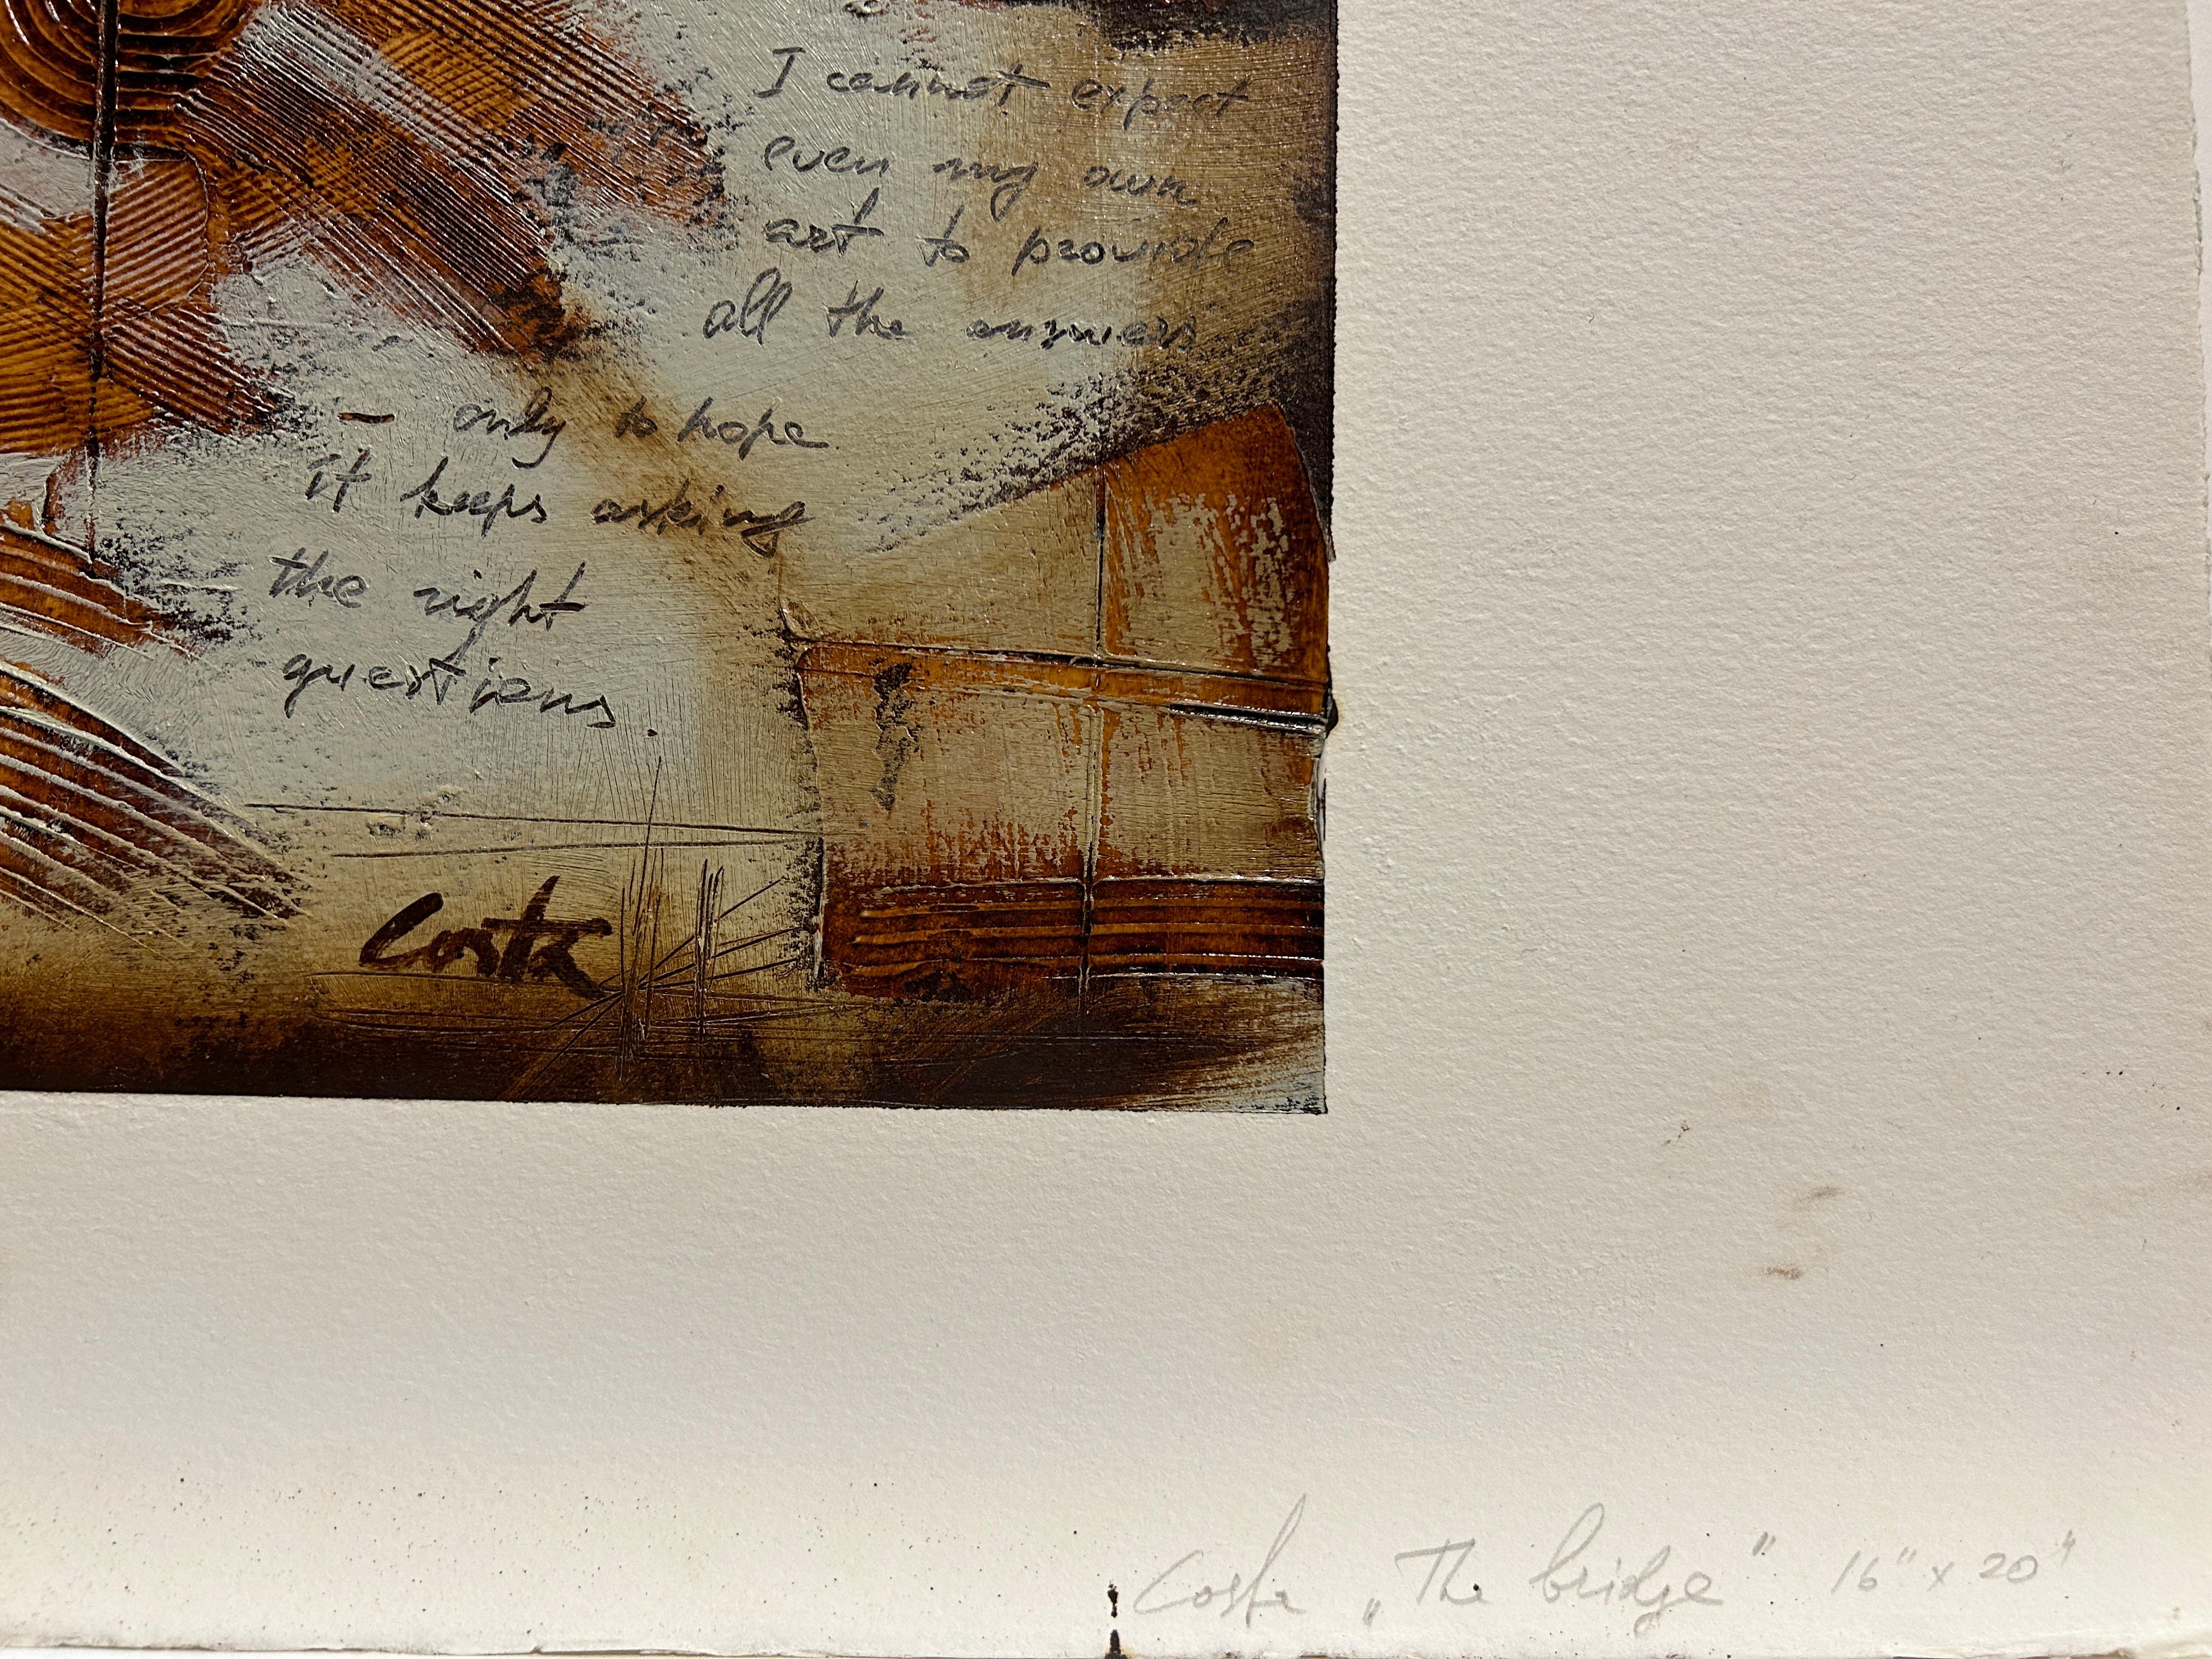 I cannot expect
even my own
art to provide
all the answers
– only to hope
it keeps asking
the right
questions.
Costa
Costa „The bridge" 16" x 20"